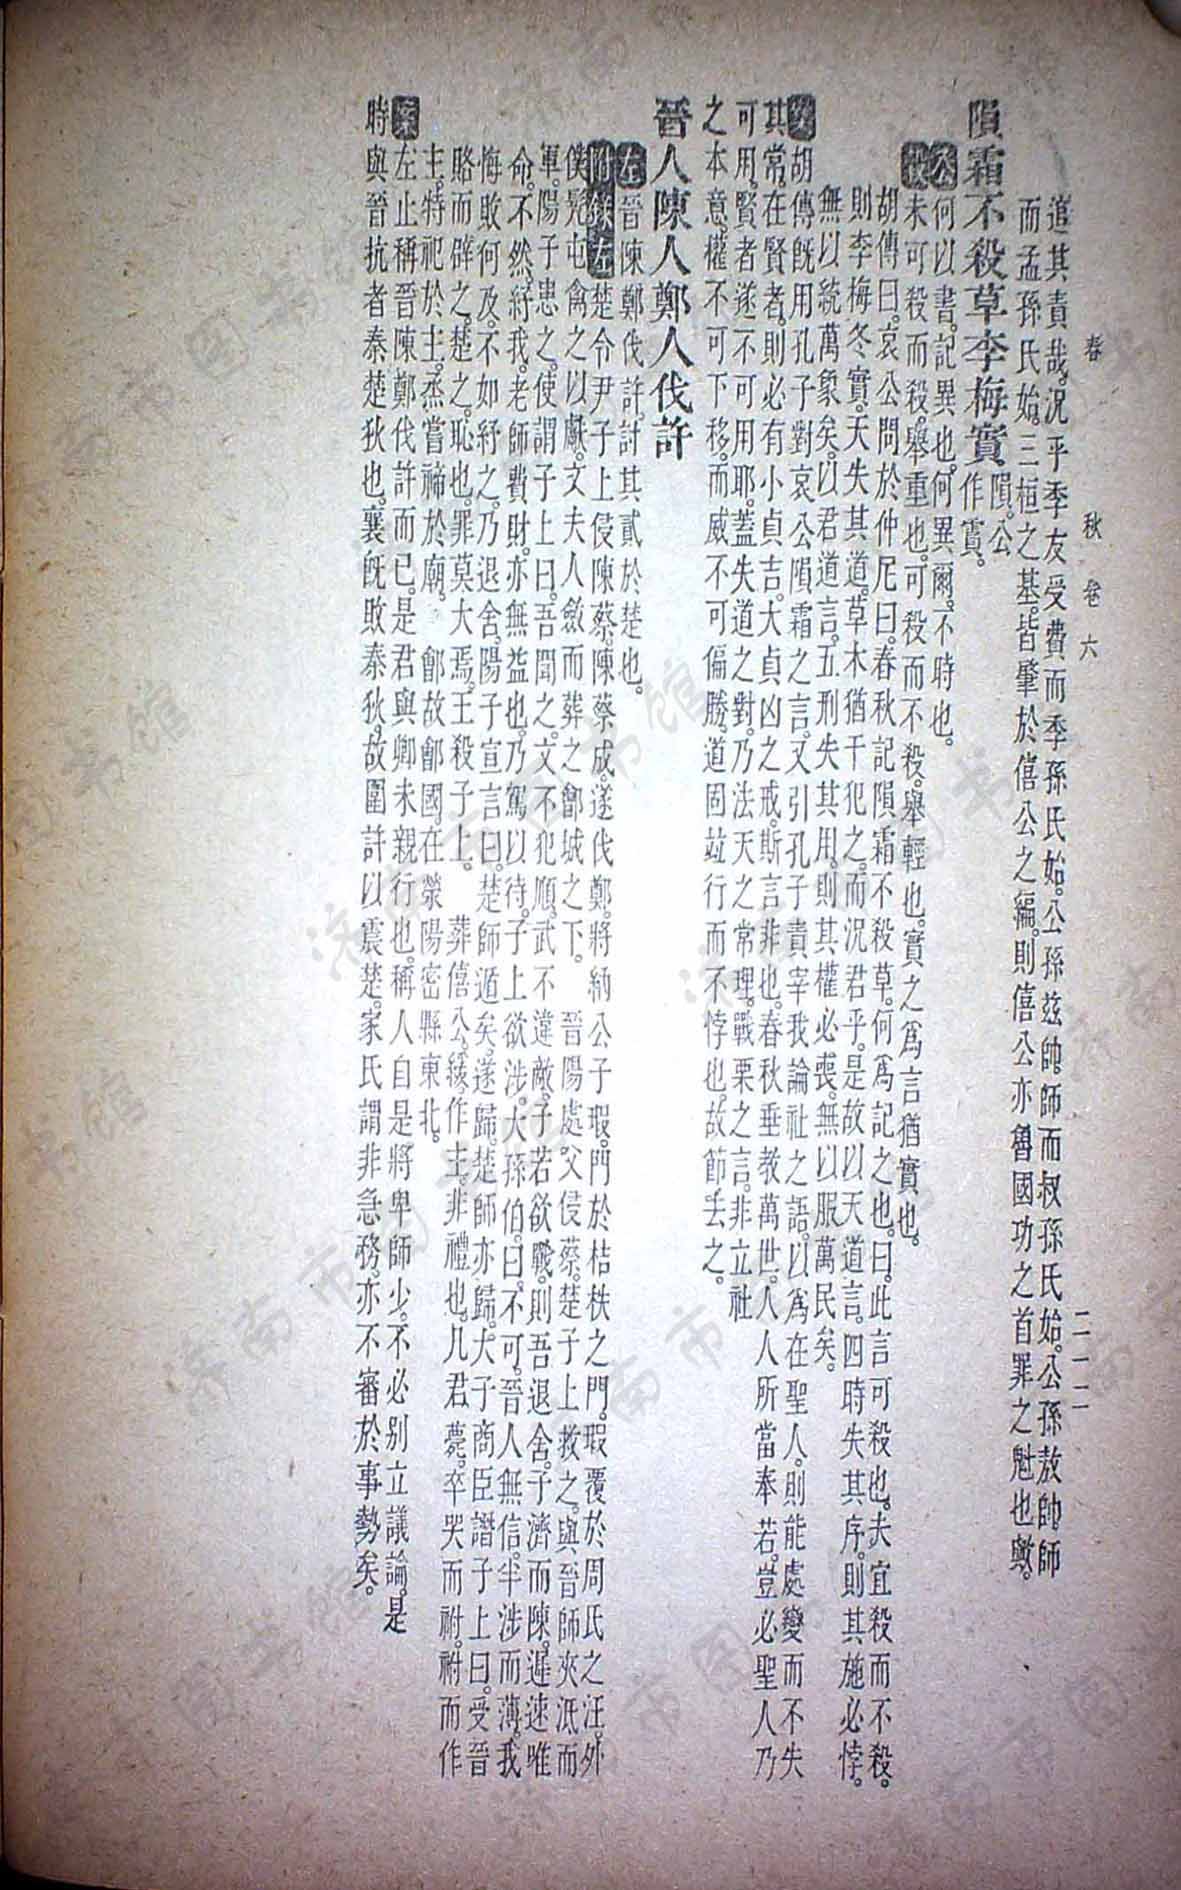 春 秋 卷六 二一二
追其責哉。況乎季友受費而季孫氏始。公孫茲帥師而叔孫氏始。公孫敖帥師
而孟孫氏始。三桓之基。皆肇於僖公之編。則僖公亦魯國功之首罪之魁也歟。
隕霜不殺草李梅實 隕。公
作霣。
公 何以書。記異也。何異爾。不時也。
穀 未可殺而殺。舉重也。可殺而不殺。舉輕也。實之爲言猶實也。
胡傳曰。哀公問於仲尼曰。春秋記隕霜不殺草。何爲記之也。曰。此言可殺也。夫宜殺而不殺。
則李梅冬實。天失其道。草木猶干犯之。而況君乎。是故以天道言。四時失其序。則其施必悖。
無以統萬象矣。以君道言。五刑失其用。則其權必喪。無以服萬民矣。
胡傳旣用孔子對哀公隕霜之言。又引孔子責宰我論社之語。以爲在聖人。則能處變而不失
其常。在賢者。則必有小貞吉。大貞凶之戒。斯言非也。春秋垂教萬世。人人所當奉若。豈必聖人乃
可用。賢者遂不可用耶。蓋失道之對。乃法天之常理。戰栗之言。非立社
之本意。權不可下移。而威不可偏勝。道固竝行而不悖也。故節去之。
晉人陳人鄭人伐許
左 晉陳鄭伐許。討其貳於楚也。
附錄左 楚令尹子上侵陳蔡。陳蔡成。遂伐鄭。將納公子瑕。門於桔柣之門。瑕覆於周氏之汪。外
僕髡屯禽之以獻。文夫人斂而葬之鄶城之下。 晉陽處父侵蔡。楚子上救之。與晉師夾泜而
軍。陽子患之。使謂子上曰。吾聞之。文不犯順。武不違敵。子若欲戰。則吾退舍。子濟而陳。遲速唯
命。不然。紓我。老師費財。亦無益也。乃駕以待。子上欲涉。大孫伯曰。不可。晉人無信。半涉而薄我。
悔敗何及。不如紓之。乃退舍。陽子宣言曰。楚師遁矣。遂歸。楚師亦歸。大子商臣譖子上曰。受晉
賂而辟之。楚之恥也。罪莫大焉。王殺子上。 葬僖公。緩。作主。非禮也。凡君薨。卒哭而祔。祔而作
主。特祀於主。烝嘗禘於廟。 鄶故鄶國。在滎陽密縣東北。
案 左止稱晉陳鄭伐許而已。是君與卿未親行也。稱人自是。將卑師少。不必别立議論。是
時與晉抗者秦楚狄也。襄旣敗秦狄。故圍許以震楚。家氏謂非急務。亦不審於事勢矣。